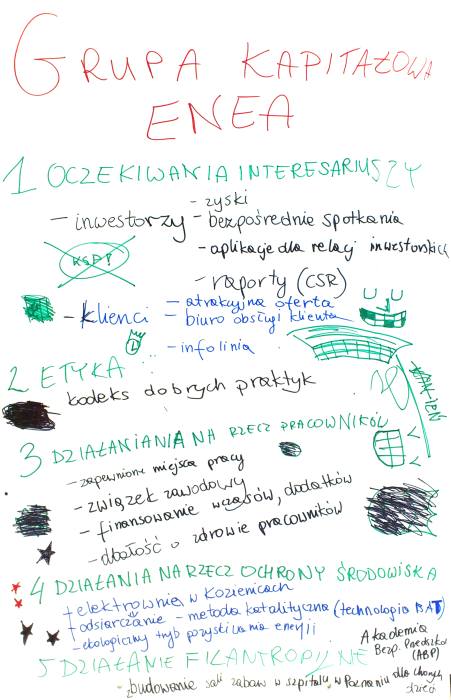 GRUPA KAPITAŁOWA
ENEA
1 OCZEKIWANIA INTERESARIUSZY
- zyski
- inwestorzy - bezpośrednie spotkania
- aplikacje dla relacji inwestorskich
- raporty (CSR)
- klienci - atrakcyjna oferta
- biuro obsługi klienta
- infolinia
2 ETYKA
kodeks dobrych praktyk
3 DZIAŁANIANIA NA RZECZ PRACOWNIKÓW
- zapewnione miejsca pracy
- związek zawodowy
- finansowanie wczasów, dodatków
- dbałość o zdrowie pracowników
4 DZIAŁANIA NA RZECZ OCHRONY ŚRODOWISKA
+ elektrownia w Kozienicach
+ odsiarczanie - metoda katalityczna (technologia BAT)
- ekologiczny tryb pozyskiwania energii
5 DZIAŁANIE FILANTROPIJNE
Akademia
Bezp.
(ABP)
- budowanie sali zabaw w szpitalu w Poznaniu dla chorych
dzieci